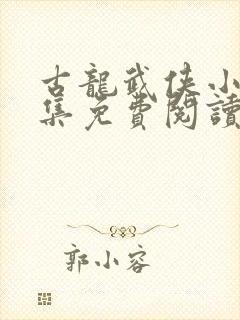 古龍武俠小
集免費閱讀
郭小容